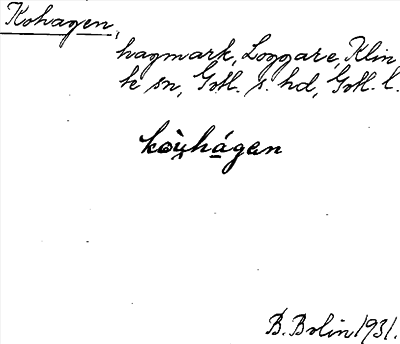 Kohagen,
hagmark, Loggare, Klin
te sn, Gotl. s. hd, Gotl. l.
kòu̯hágen
B. Bolin 1931.